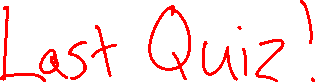 Last Quiz!